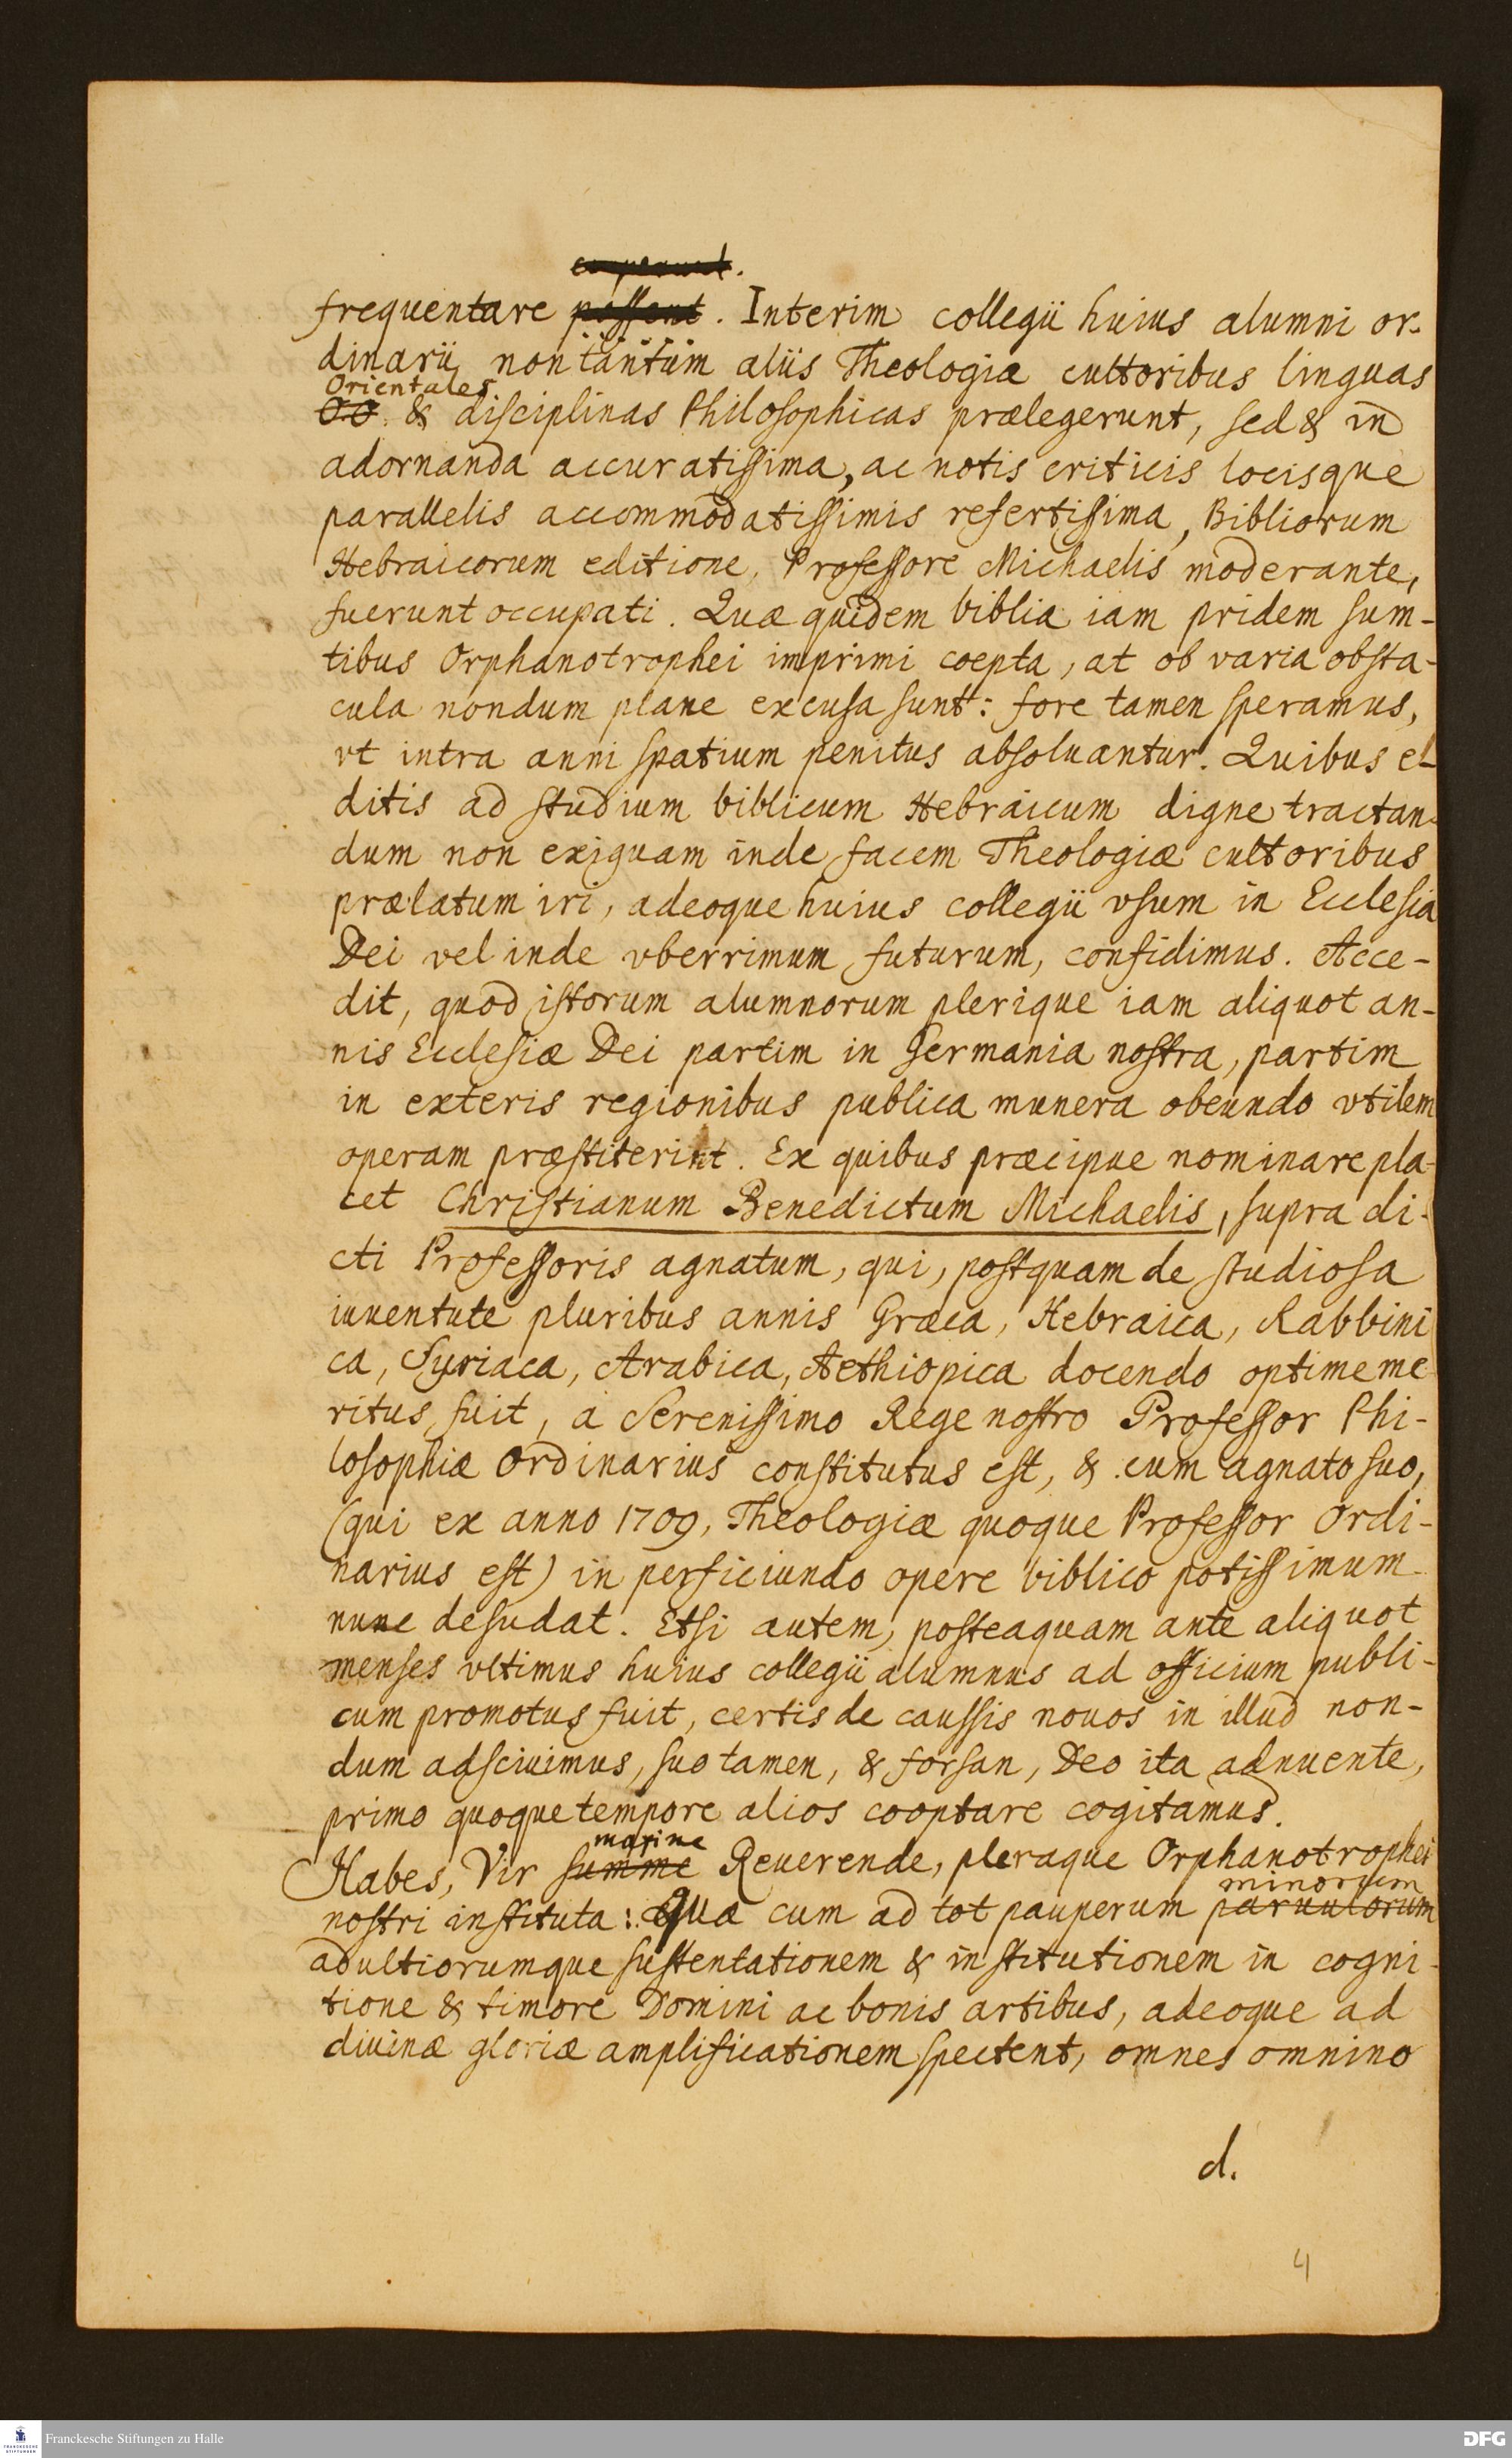 frequentare possent. Interim collegii huius alumni or-
dinarii non tantum aliis Theologiæ cultoribus linguas
Orientales
OO. & disciplinas Philosophicas prælegerunt, sed & in
adornanda accuratissima, ac notis criticis locisque
parallelis accommodatissimis refertissima, Bibliorum
Hebraicorum editione, Professore Michaelis moderante,
fuerunt occupati. Quæ quidem biblia iam pridem sum-
tibus Orphanotrophei imprimi coepta, at ob varia obsta-
cula nondum plane excusa sunt: fore tamen speramus,
vt intra anni spatium penitus absoluantur. Quibus e-
ditis ad studium biblicum Hebraicum digne tractan-
dum non exiguam inde facem Theologiæ cultoribus
prælatum iri, adeoque huius collegii vsum in Ecclesia
Dei vel inde vberrimum futurum, confidimus. Acce-
dit, quod istorum alumnorum plerique iam aliquot an-
nis Ecclesiæ Dei partim in Germania nostra, partim
in exteris regionibus publica munera obeundo vtilem
operam præstiterint. Ex quibus præcipue nominare pla-
cet Christianum Benedictum Michaelis, supra di-
cti Professoris agnatum, qui, postquam de studiosa
iuuentute pluribus annis Græca, Hebraica, Rabbini
ca, Syriaca, Arabica, Aethiopica docendo optime me
ritus fuit, a Serenissimo Rege nostro Professor Phi-
losophiæ Ordinarius constitutus est, & cum agnato suo,
(qui ex anno 1709, Theologiæ quoque Professor Ordi-
narius est) in perficiundo opere biblico potissimum
nunc desudat. Etsi autem, posteaquam ante aliquot
menses vltimus huius collegii alumnus ad officium publi-
cum promotus fuit, certis de caussis nouos in illud non-
dum adsciuimus, suo tamen, & forsan, Deo ita adnuente,
primo quoque tempore alios cooptare cogitamus.
maxime
Habes, Vir summe Reuerende, pleraque Orphanotrophei
minorum
nostri instituta: Quæ cum ad tot pauperum paruulorum
adultiorumque sustentationem & institutionem in cogni-
tione & timore Domini ac bonis artibus, adeoque ad
diuinæ gloriæ amplificationem spectent, omnes omnino
d.
4
Franckesche Stiftungen zu Halle
DFG